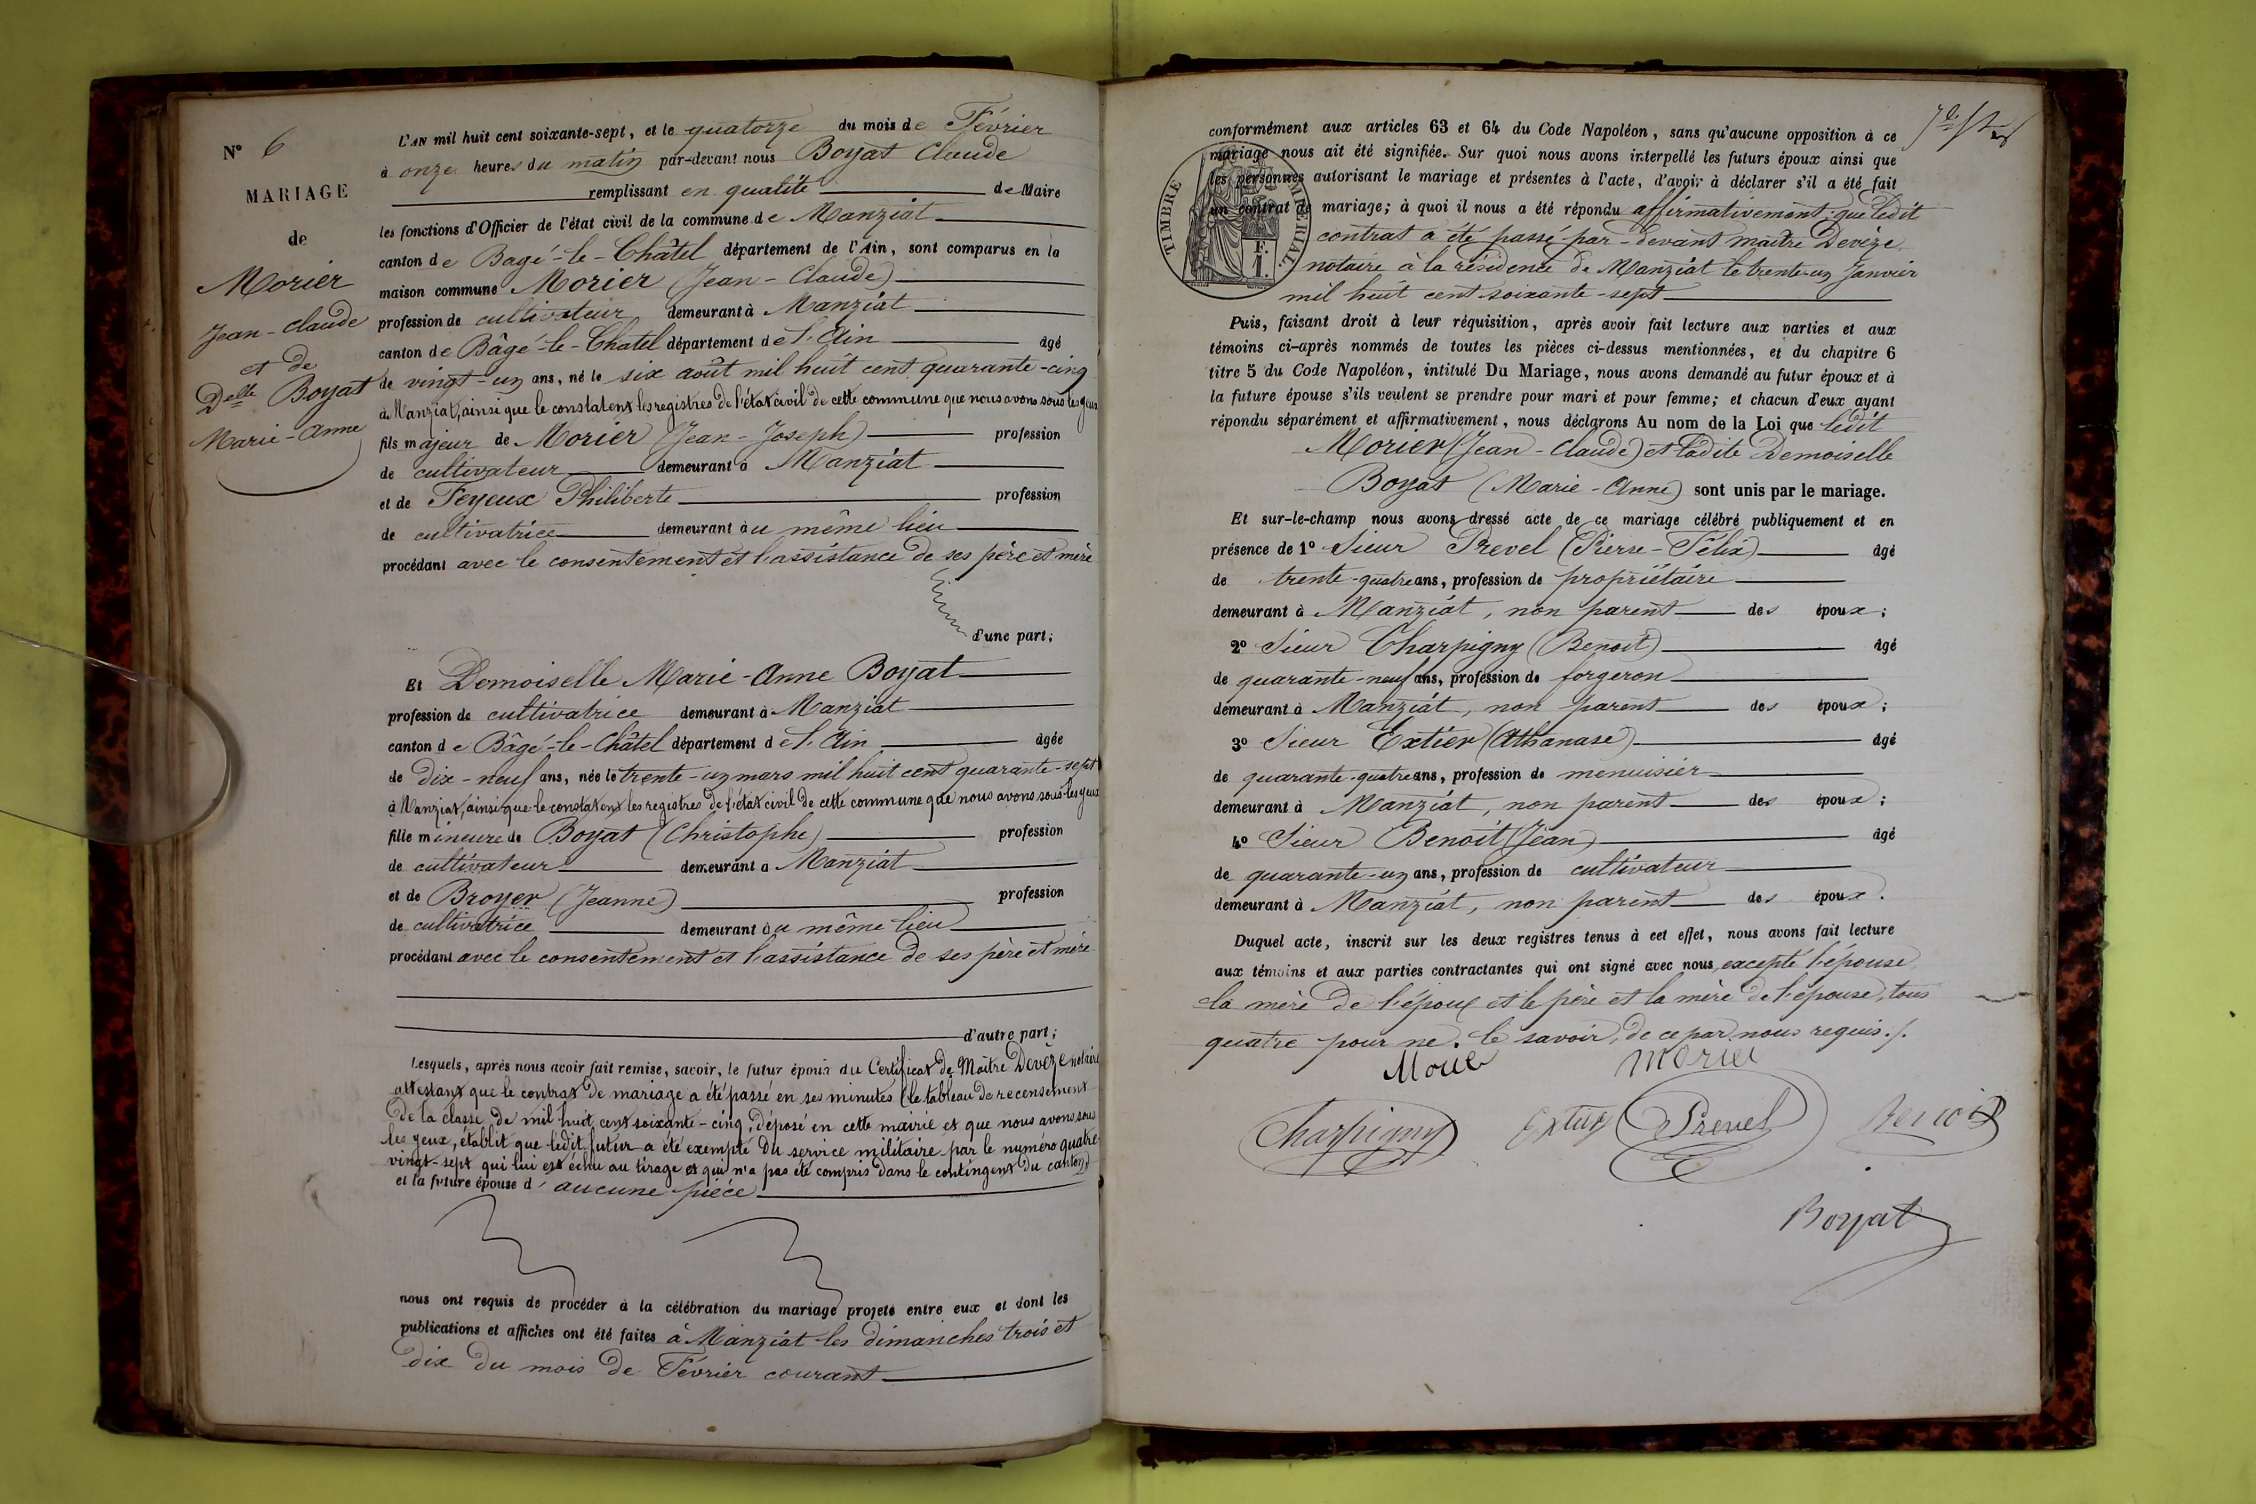 N° 6
MARIAGE
de
Morier
Jean-Claude
et de
Delle Boyat
Marie-Anne
L'AN mil huit cent soixante-sept, et le quatorze du mois de Février
à onze heures du matin par-devant nous Boyat Claude
remplissant en qualité de Maire
les fonctions d'Officier de l'état civil de la commune de Manziat
canton de Bagé-le-Châtel département de l'Ain, sont comparus en la
maison commune Morier (Jean-Claude)
profession de cultivateur demeurant à Manziat
canton de Bâgé-le-Chatel département de l'Ain âgé
de vingt-un ans, né le six août mil huit cent quarante-cinq
à Manziat, ainsi que le constatent les registres de l'état civil de cette commune que nous avons sous les yeux
fils majeur de Morier (Jean-Joseph) profession
de cultivateur demeurant à Manziat
et de Feyeux Philiberte profession
de cultivatrice demeurant au même lieu
procédant avec le consentement et l'assistance de ses père et mère
d'une part;
Et Demoiselle Marie-Anne Boyat
profession de cultivatrice demeurant à Manziat
canton de Bâgé-le-Châtel département de l'Ain âgée
de dix-neuf ans, née le trente-un mars mil huit cent quarante-sept
à Manziat, ainsi que le constatent les registres de l'état civil de cette commune que nous avons sous les yeux
fille mineure de Boyat (Christophe) profession
de cultivateur demeurant à Manziat
et de Broyer (Jeanne) profession
de cultivatrice demeurant au même lieu
procédant avec le consentement et l'assistance de ses père et mère
d'autre part;
Lesquels, après nous avoir fait remise, savoir, le futur époux du Certificat de Maître Devèze notaire
attestant que le contrat de mariage a été passé en ses minutes (le tableau de recensement
de la classe de mil huit cent soixante-cinq, déposé en cette mairie et que nous avons sous
les yeux, établit que ledit futur a été exempté du service militaire par le numéro quatre
vingt-sept qui lui est échu au tirage et qui n'a pas été compris dans le contingent du canton)
et la future épouse d'aucune pièce
nous ont requis de procéder à la célébration du mariage projeté entre eux et dont les
publications et affiches ont été faites à Manziat les dimanches trois et
dix du mois de Février courant
conformément aux articles 63 et 64 du Code Napoléon, sans qu'aucune opposition à ce
mariage nous ait été signifiée. Sur quoi nous avons interpellé les futurs époux ainsi que
les personnes autorisant le mariage et présentes à l'acte, d'avoir à déclarer s'il a été fait
un contrat de mariage; à quoi il nous a été répondu affirmativement que ledit
contrat a été passé par-devant maître Devèze
notaire à la résidence de Manziat le trente-un Janvier
mil huit cent soixante-sept
TIMBRE IMPÉRIAL
F.
1.
Puis, faisant droit à leur réquisition, après avoir fait lecture aux parties et aux
témoins ci-après nommés de toutes les pièces ci-dessus mentionnées, et du chapitre 6
titre 5 du Code Napoléon, intitulé Du Mariage, nous avons demandé au futur époux et à
la future épouse s'ils veulent se prendre pour mari et pour femme; et chacun d'eux ayant
répondu séparément et affirmativement, nous déclarons Au nom de la Loi que ledit
Morier (Jean-Claude) et ladite Demoiselle
Boyat (Marie-Anne) sont unis par le mariage.
Et sur-le-champ nous avons dressé acte de ce mariage célébré publiquement et en
présence de 1° Sieur Prevel (Pierre-Félix) âgé
de trente-quatre ans, profession de propriétaire
demeurant à Manziat, non parent des époux;
2° Sieur Charpigny (Benoit) âgé
de quarante-neuf ans, profession de forgeron
demeurant à Manziat, non parent des époux;
3° Sieur Extier (Athanase) âgé
de quarante-quatre ans, profession de menuisier
demeurant à Manziat, non parent des époux;
4° Sieur Benoit (Jean) âgé
de quarante-un ans, profession de cultivateur
demeurant à Manziat, non parent des époux.
Duquel acte, inscrit sur les deux registres tenus à cet effet, nous avons fait lecture
aux témoins et aux parties contractantes qui ont signé avec nous, excepté l'épouse
la mère de l'époux et le père et la mère de l'épouse, tous
quatre pour ne le savoir, de ce par nous requis./.
Morier
Charpigny Extier Prevel Benoit
Boyat